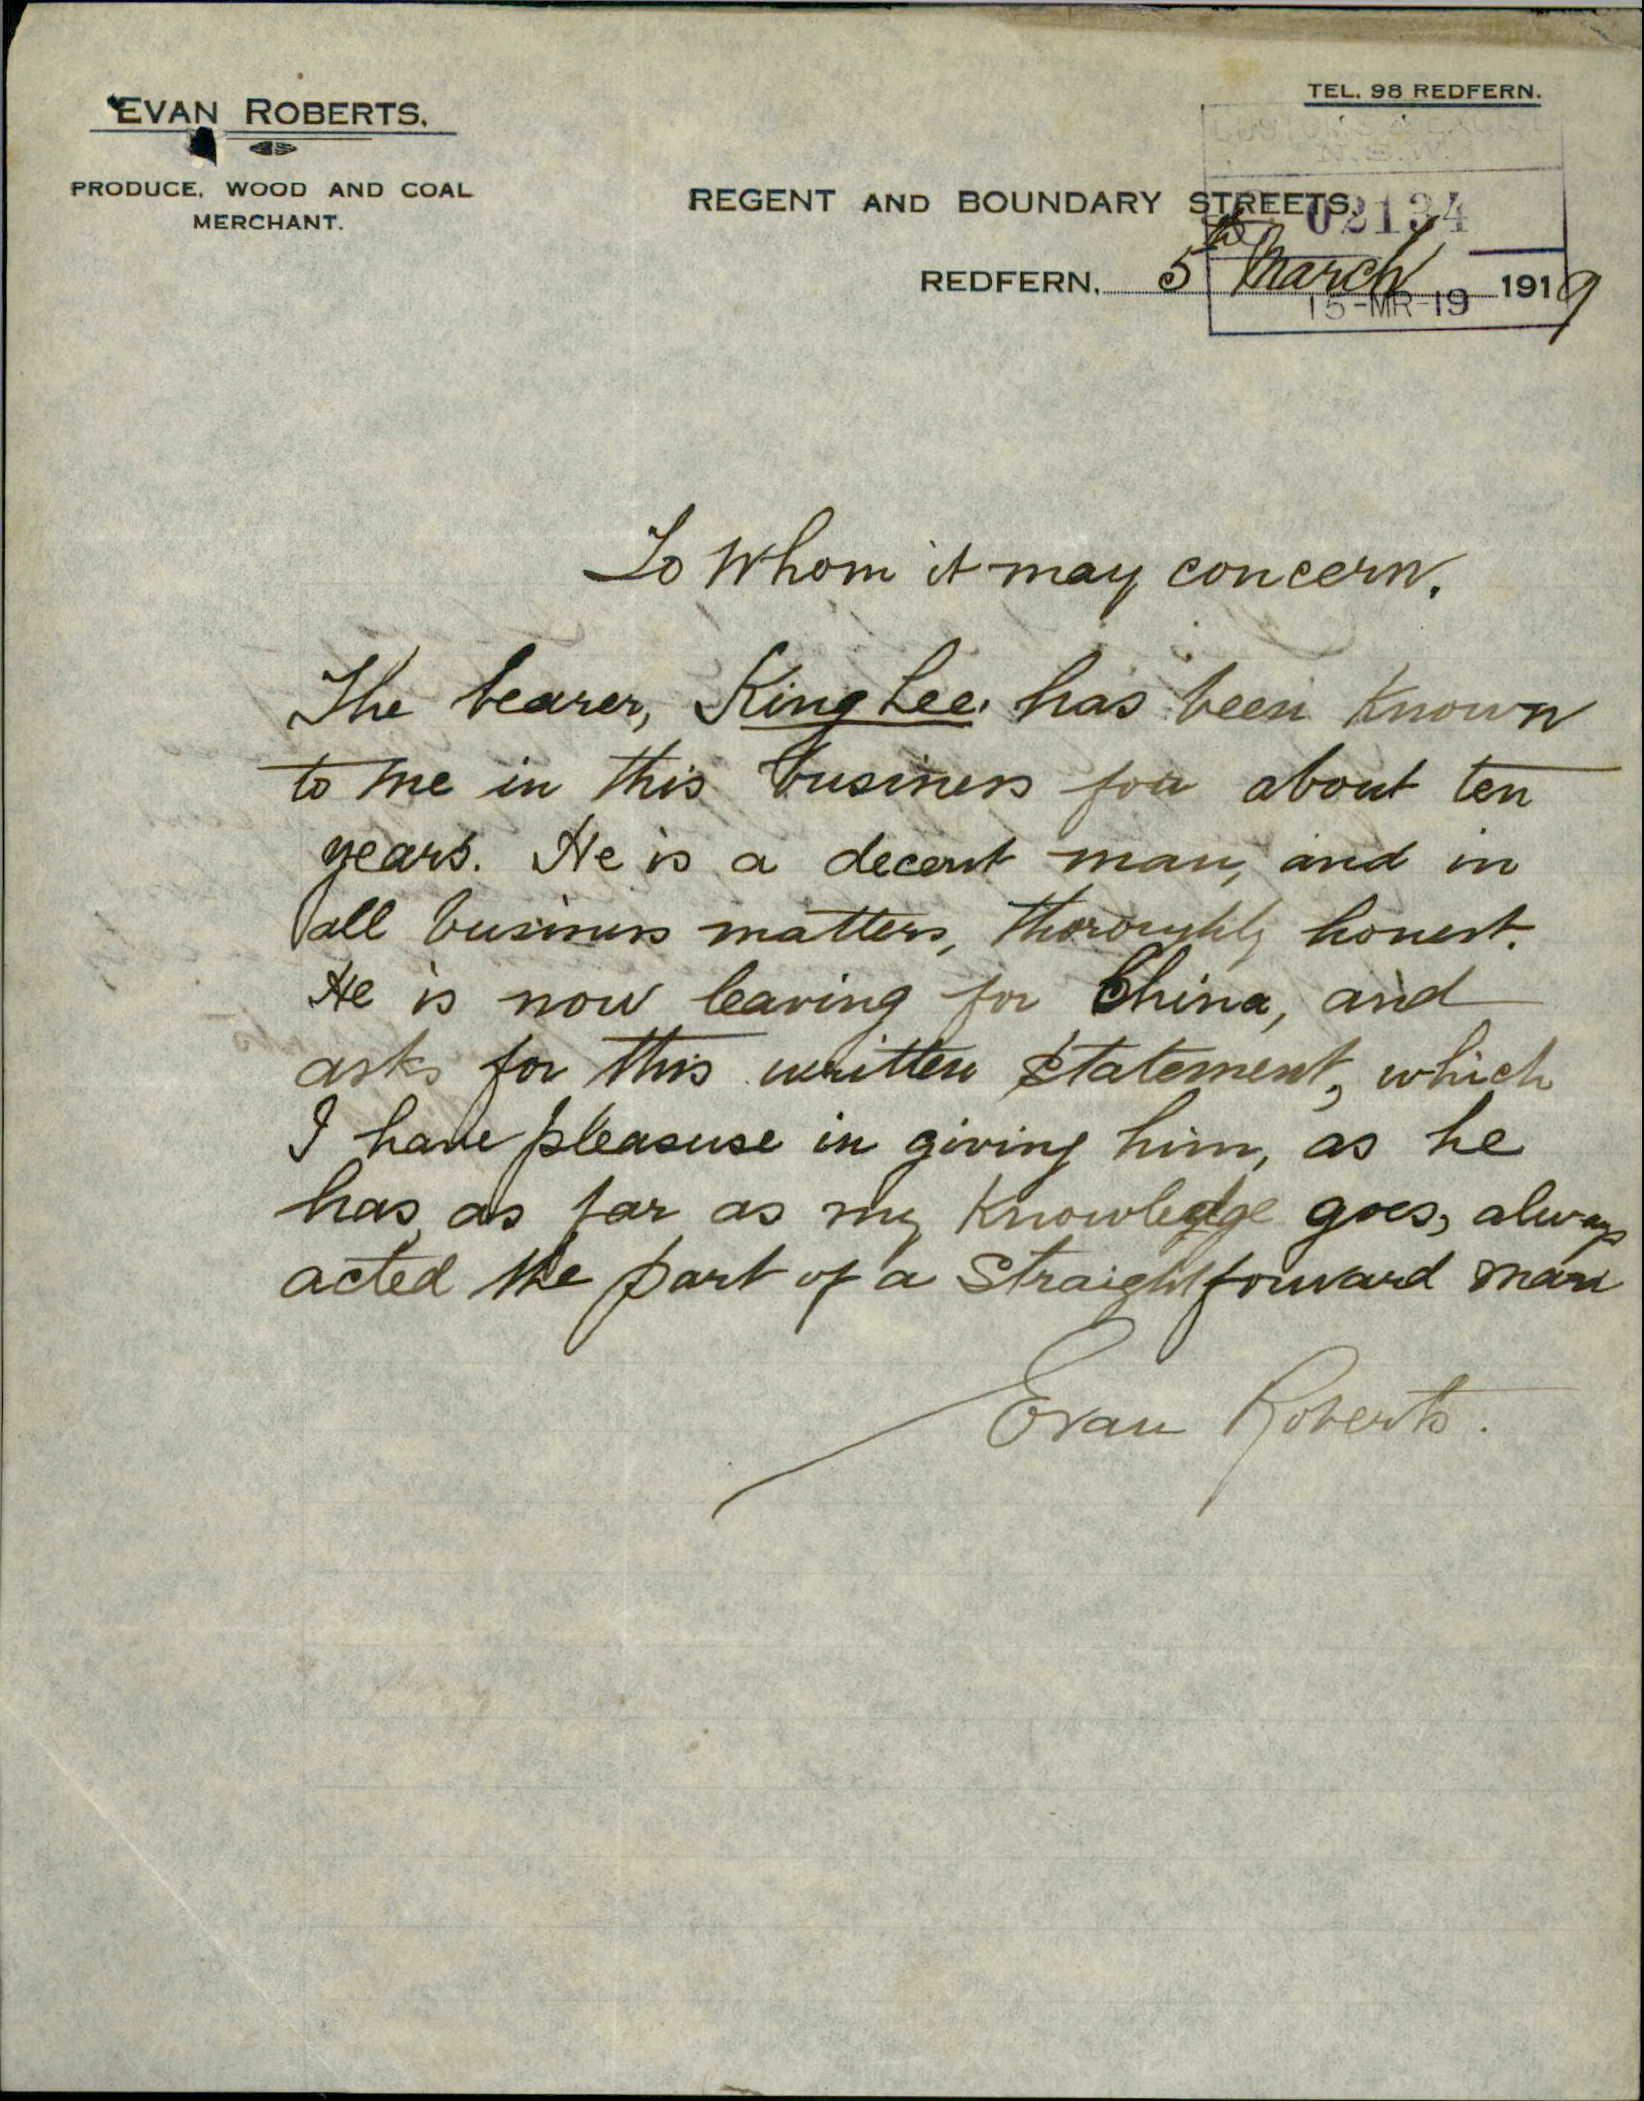 EVAN ROBERTS.
PRODUCE, WOOD AND COAL
MERCHANT.
TEL. 98 REDFERN.
REGENT AND BOUNDARY STREETS,
02134
REDFERN, 5th March 1919
15-MR-19
To Whom it may concern.
The bearer, King Lee. has been known
to me in this business for about ten
years. He is a decent man, and in
all business matters, thoroughly honest.
He is now leaving for China, and
asks for this written statement, which
I have pleasure in giving him, as he
has, as far as my knowledge goes, always
acted the part of a straightforward man
Evan Roberts.